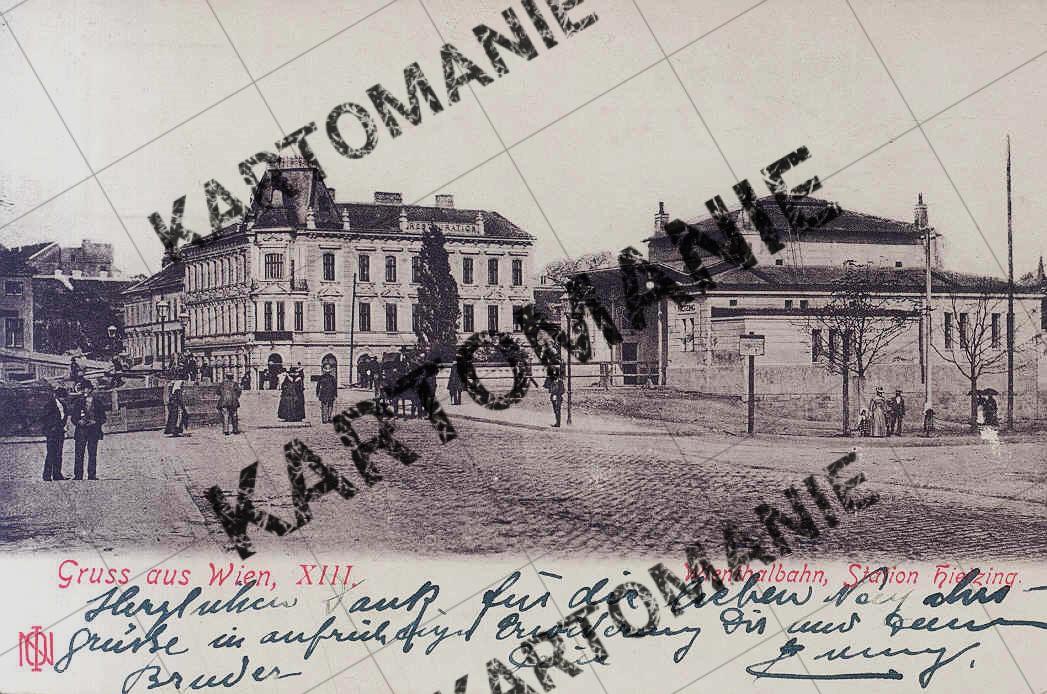 KARTOMANIE
KARTOMANIE
KARTOMANIE
RESTAURATION
Gruss aus Wien, XIII.
Wienthalbahn, Station Hietzing.
Herzlichen Dank für die lieben Neujahrs-
grüße in aufrichtiger Erwiderung Dir und Deinem
Bruder
KARTOMANIE